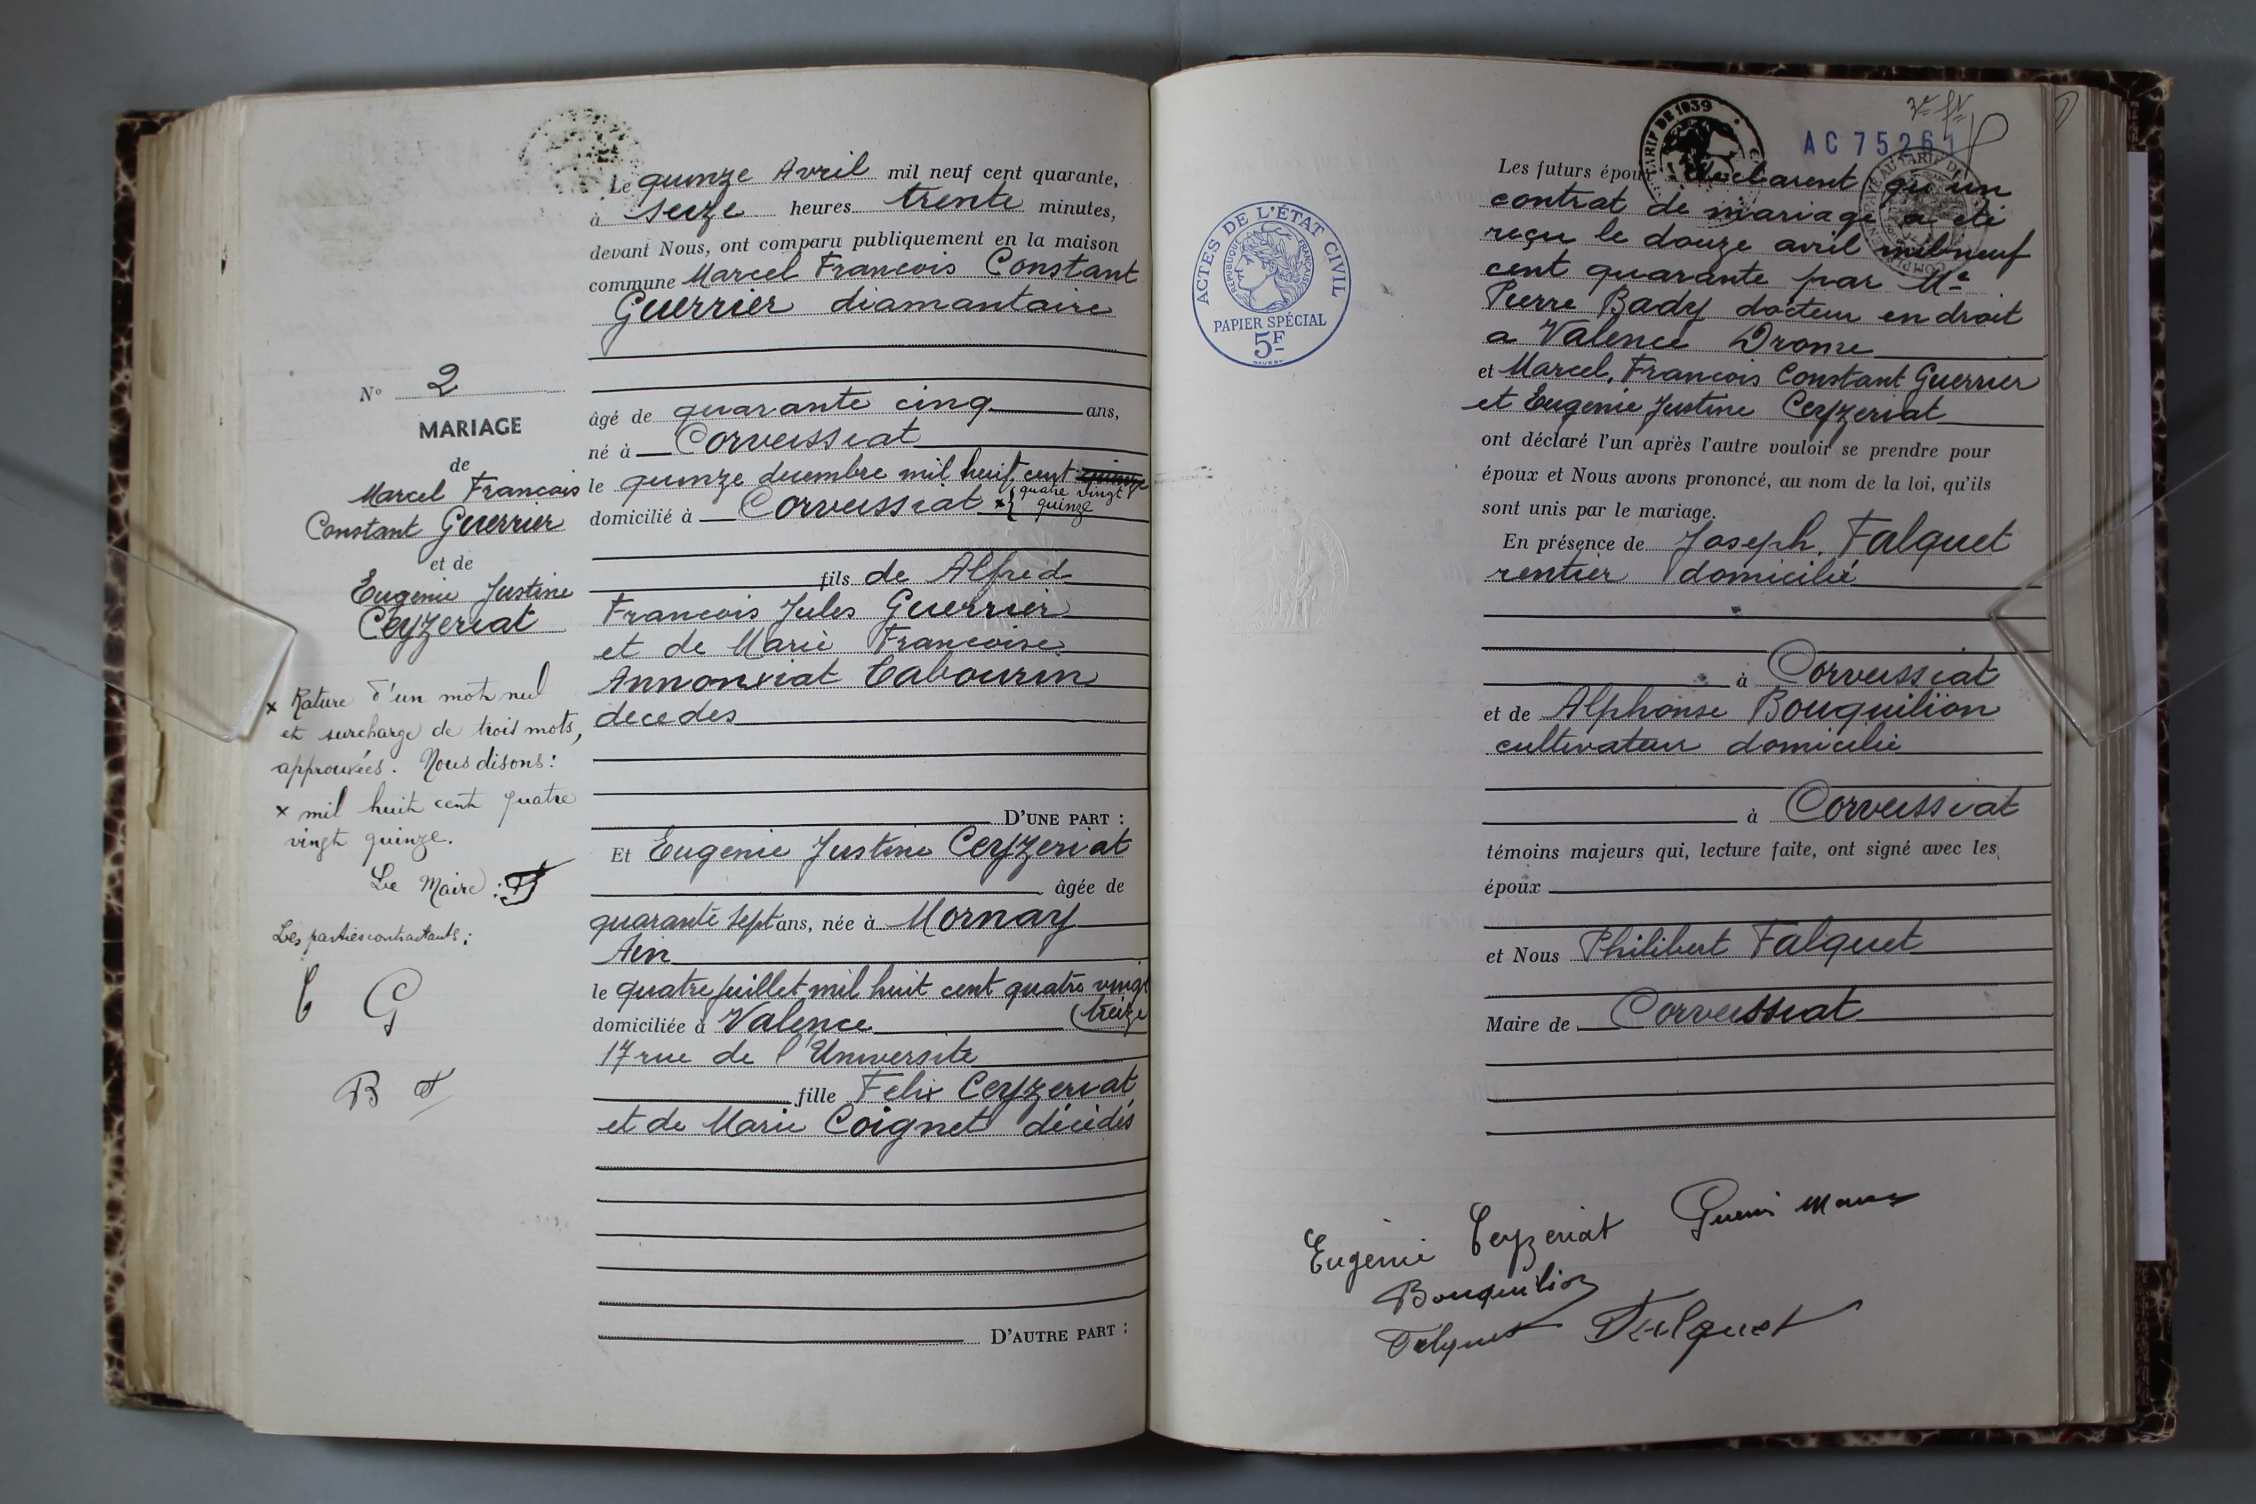 Le quinze Avril mil neuf cent quarante,
à seize heures trente minutes,
devant Nous, ont comparu publiquement en la maison
commune Marcel Francois Constant
Guerrier diamantaire
N° 2
MARIAGE
de
Marcel Francois
Constant Guerrier
et de
Eugenie Justine
Ceyzeriat
x Rature d'un mot nul
et surcharge de trois mots,
approuvées. Nous disons:
x mil huit cent quatre
vingt quinze.
Le Maire:
Les parties contractantes:
C G
B F
âgé de quarante cinq ans,
né à Corveissiat
le quinze decembre mil huit cent quinze
domicilié à Corveissiat x{ quatre vingt
quinze
fils de Alfred
Francois Jules Guerrier
et de Marie Francoise
Annonxiat Cabourin
decedes
D'UNE PART :
Et Eugenie Justine Ceyzeriat
âgée de
quarante sept ans, née à Mornay
Ain
le quatre juillet mil huit cent quatre vingt
domiciliée à Valence (treize
17 rue de l'Universite
fille Felix Ceyzeriat
et de Marie Coignet décédés
D'AUTRE PART :
TARIF DE 1939
AC 75261
ACTES DE L'ÉTAT CIVIL
RÉPUBLIQUE FRANÇAISE
PAPIER SPÉCIAL
5F
Les futurs époux déclarent qu'un
contrat de mariage a été
reçu le douze avril mil neuf
cent quarante par Me
Pierre Bady docteur en droit
a Valence Drome
et Marcel, Francois Constant Guerrier
et Eugenie Justine Ceyzeriat
ont déclaré l'un après l'autre vouloir se prendre pour
époux et Nous avons prononcé, au nom de la loi, qu'ils
sont unis par le mariage.
En présence de Joseph Falquet
rentier domicilié
à Corveissiat
et de Alphonse Bouquilion
cultivateur domicilié
à Corveissiat
témoins majeurs qui, lecture faite, ont signé avec les
époux
et Nous Philibert Falquet
Maire de Corveissiat
Eugenie Ceyzeriat Guerrier
Bouquilion
Falquet Falquet